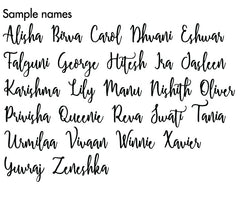 Sample names
Alisha Birva Carol Dhvani Eshwar
Falguni George Hitesh Ira Jasleen
Karishma Lily Manu Nishith Oliver
Privisha Queenie Reva Swati Tania
Urmilaa Vivaan Winnie Xavier
Yuvraj Zeneshka